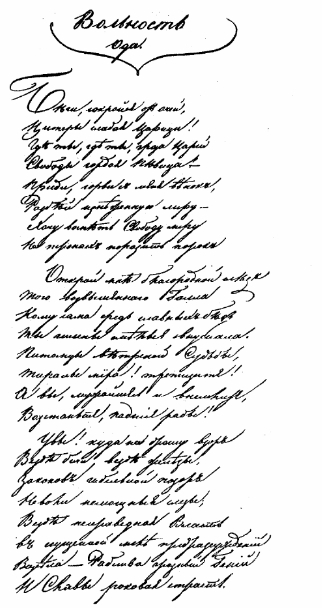 Вольность
Ода.
Бѣги, сокройся отъ очей,
Цитеры слабая Царица!
Гдѣ ты, гдѣ ты, гроза Царей
Свободы гордая Пѣвица? —
Приди, сорви съ меня вѣнокъ,
Разбѣй изнѣженную лиру —
Хочу воспѣть Свободу міру
На тронахъ поразить порокъ
Открой мнѣ благородной слѣдъ
Того возвышеннаго Галла
Кому сама средь славныхъ бѣдъ
Ты гимны смѣлые внушала.
Питомцы вѣтреной Судьбы,
Тираны міра! трепещите!
А вы, мужайтесь и внемлите,
Возстаньте, падшіе рабы!
Увы! куда ни брошу взоръ
Вездѣ бичи, вездѣ желѣзы,
Законовъ гибельной позоръ
Неволи немощныя слезы;
Вездѣ неправедная Власть
въ сгущенной мглѣ предразсужденій
Возсѣла — Рабства грозный Геній
И Славы роковая страсть.